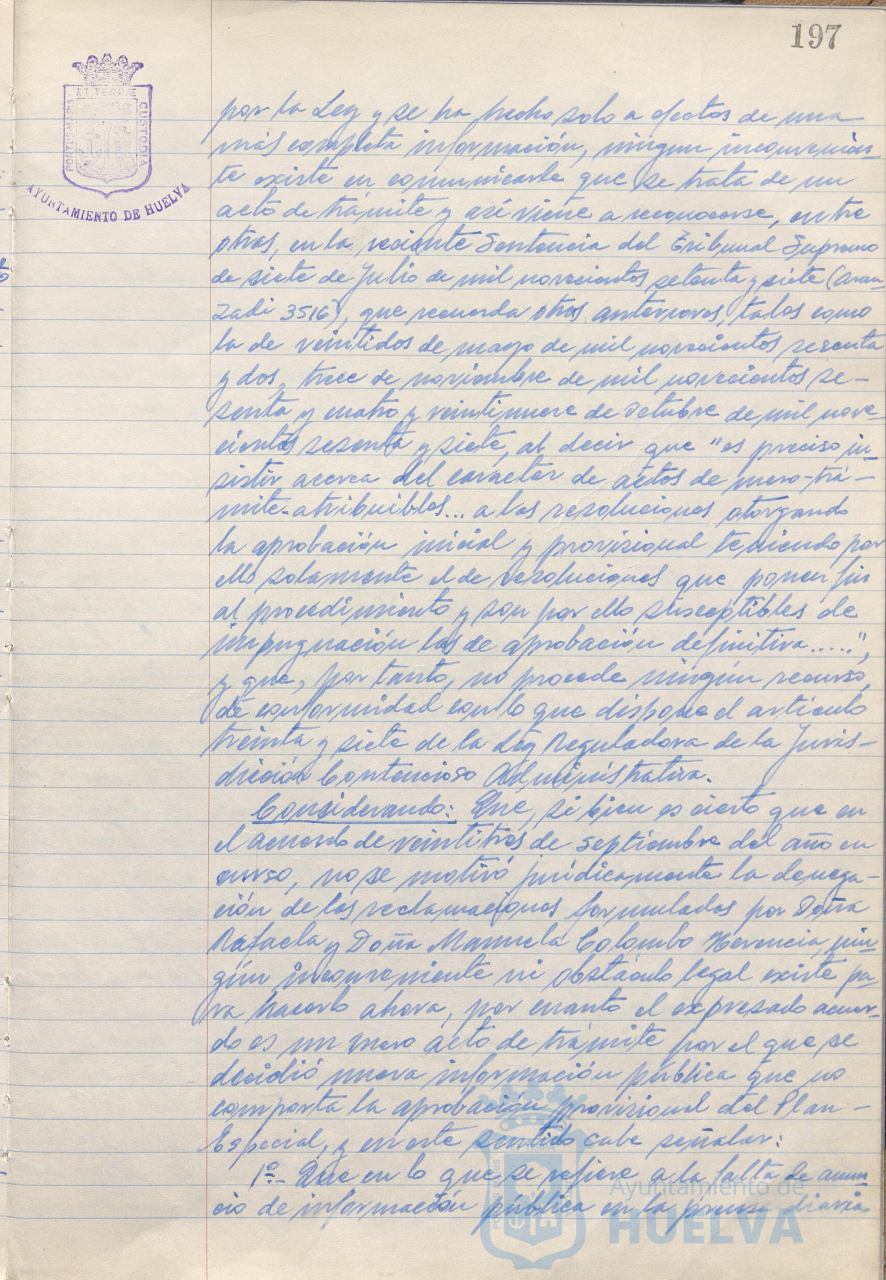 197
ET TERRÆ
PORTUS MARIS
CUSTODIA
AYUNTAMIENTO DE HUELVA
por la Ley y se ha hecho solo a efectos de una
más completa información, ningun inconvenien-
te existe en comunicarle que se trata de un
acto de trámite y así viene a reconocerse, entre
otras, en la reciente Sentencia del Tribunal Supremo
de siete de Julio de mil novecientos setenta y siete (Aran-
zadi 3516), que recuerda otras anteriores, tales como
la de veintidos de mayo de mil novecientos sesenta
y dos, trece de noviembre de mil novecientos se-
senta y cuatro y veintinueve de octubre de mil nove-
cientos sesenta y siete, al decir que "es preciso in-
sistir acerca del caracter de actos de mero-trá-
mite-atribuibles... a las resoluciones otorgando
la aprobación inicial y provisional teniendo por
ello solamente el de resoluciones que ponen fin
al procedimiento y son por ello susceptibles de
impugnación las de aprobación definitiva.....",
y que, por tanto, no procede ningún recurso,
de conformidad con lo que dispone el artículo
treinta y siete de la Ley Reguladora de la Juris-
dicción Contencioso Administrativa.
Considerando: Que, si bien es cierto que en
el acuerdo de veintitres de septiembre del año en
curso, no se motivó jurídicamente la denega-
ción de las reclamaciones formuladas por Doña
Rafaela y Doña Manuela Colombo Herencia, nin-
gún inconveniente ni obstáculo legal existe pa-
ra hacerlo ahora, por cuanto el expresado acuer-
do es un mero acto de trámite por el que se
decidió nueva información pública que no
comporta la aprobación provisional del Plan-
Especial, y en este sentido cabe señalar:
1º- Que en lo que se refiere a la falta de anun-
cio de información pública en la prensa diaria
Ayuntamiento de
HUELVA